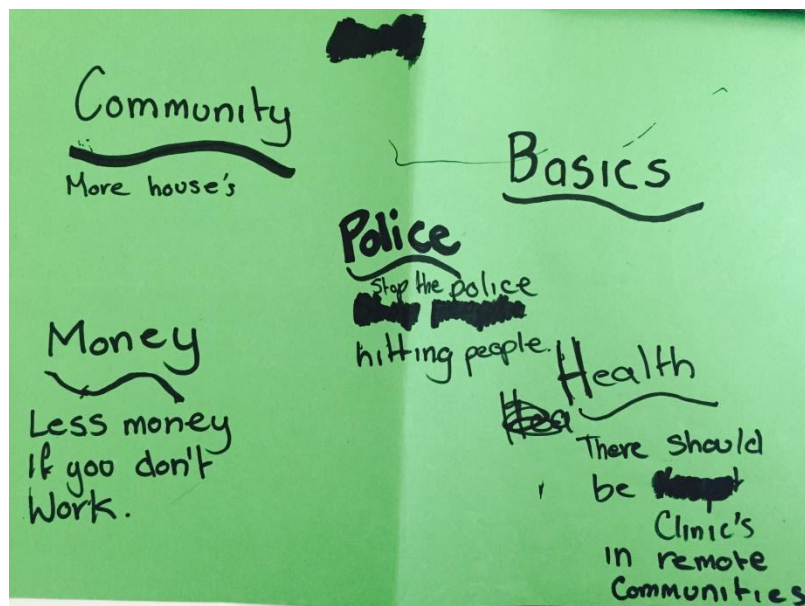 Community
More house's
Basics
Police
Stop the police
hitting people.
Money
Less money
If you don't
Work.
Health
There should
be
Clinic's
in remote
Communities